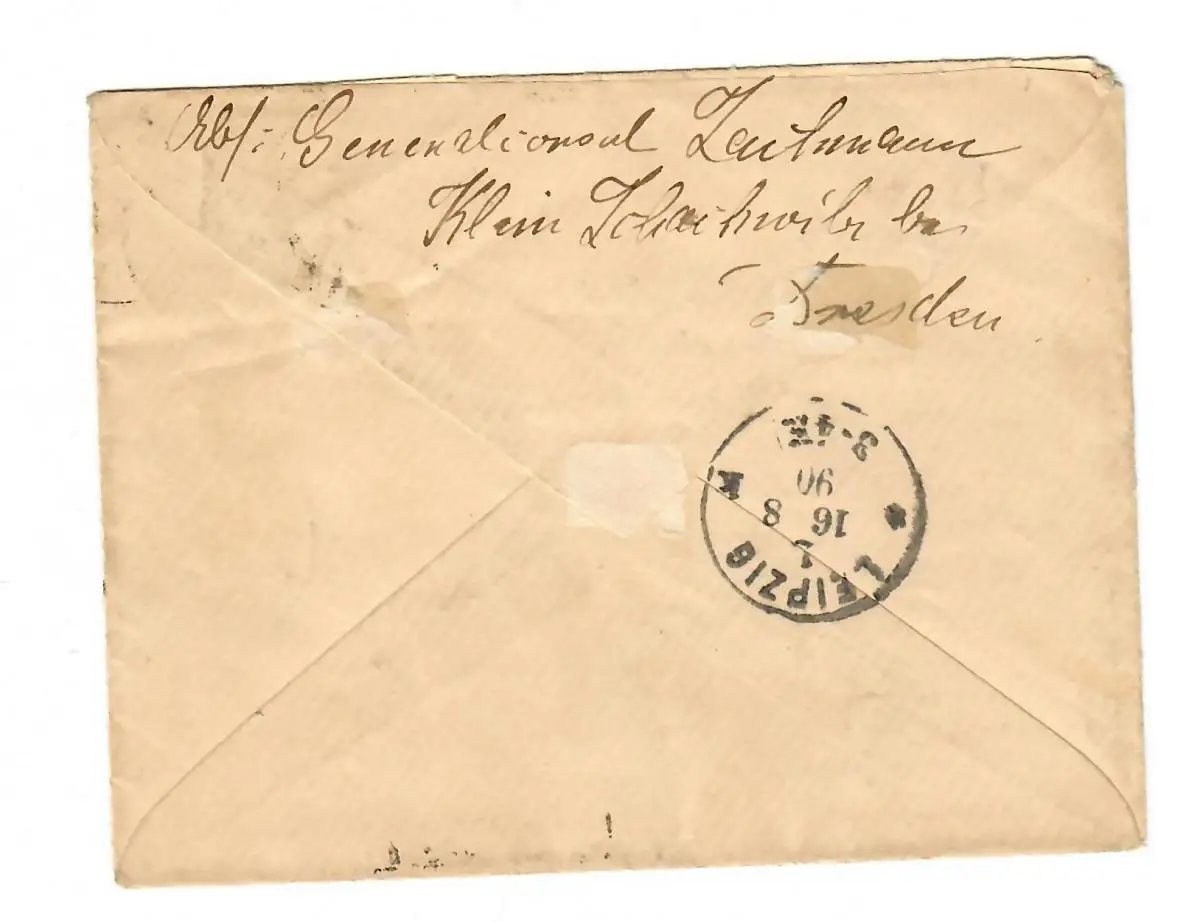 Abs: Generalconsul
Klein Zschachwitz bei
Dresden
* LEIPZIG
1
16 8
90
K
3-4N